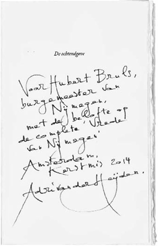 De ochtendgave
Voor Hubert Bruls,
burgemeester van
Nijmegen,
met de belofte op
de complete 'Vrede
van Nijmegen'
Amsterdam,
Kerstmis 2014
Adri van der Heijden